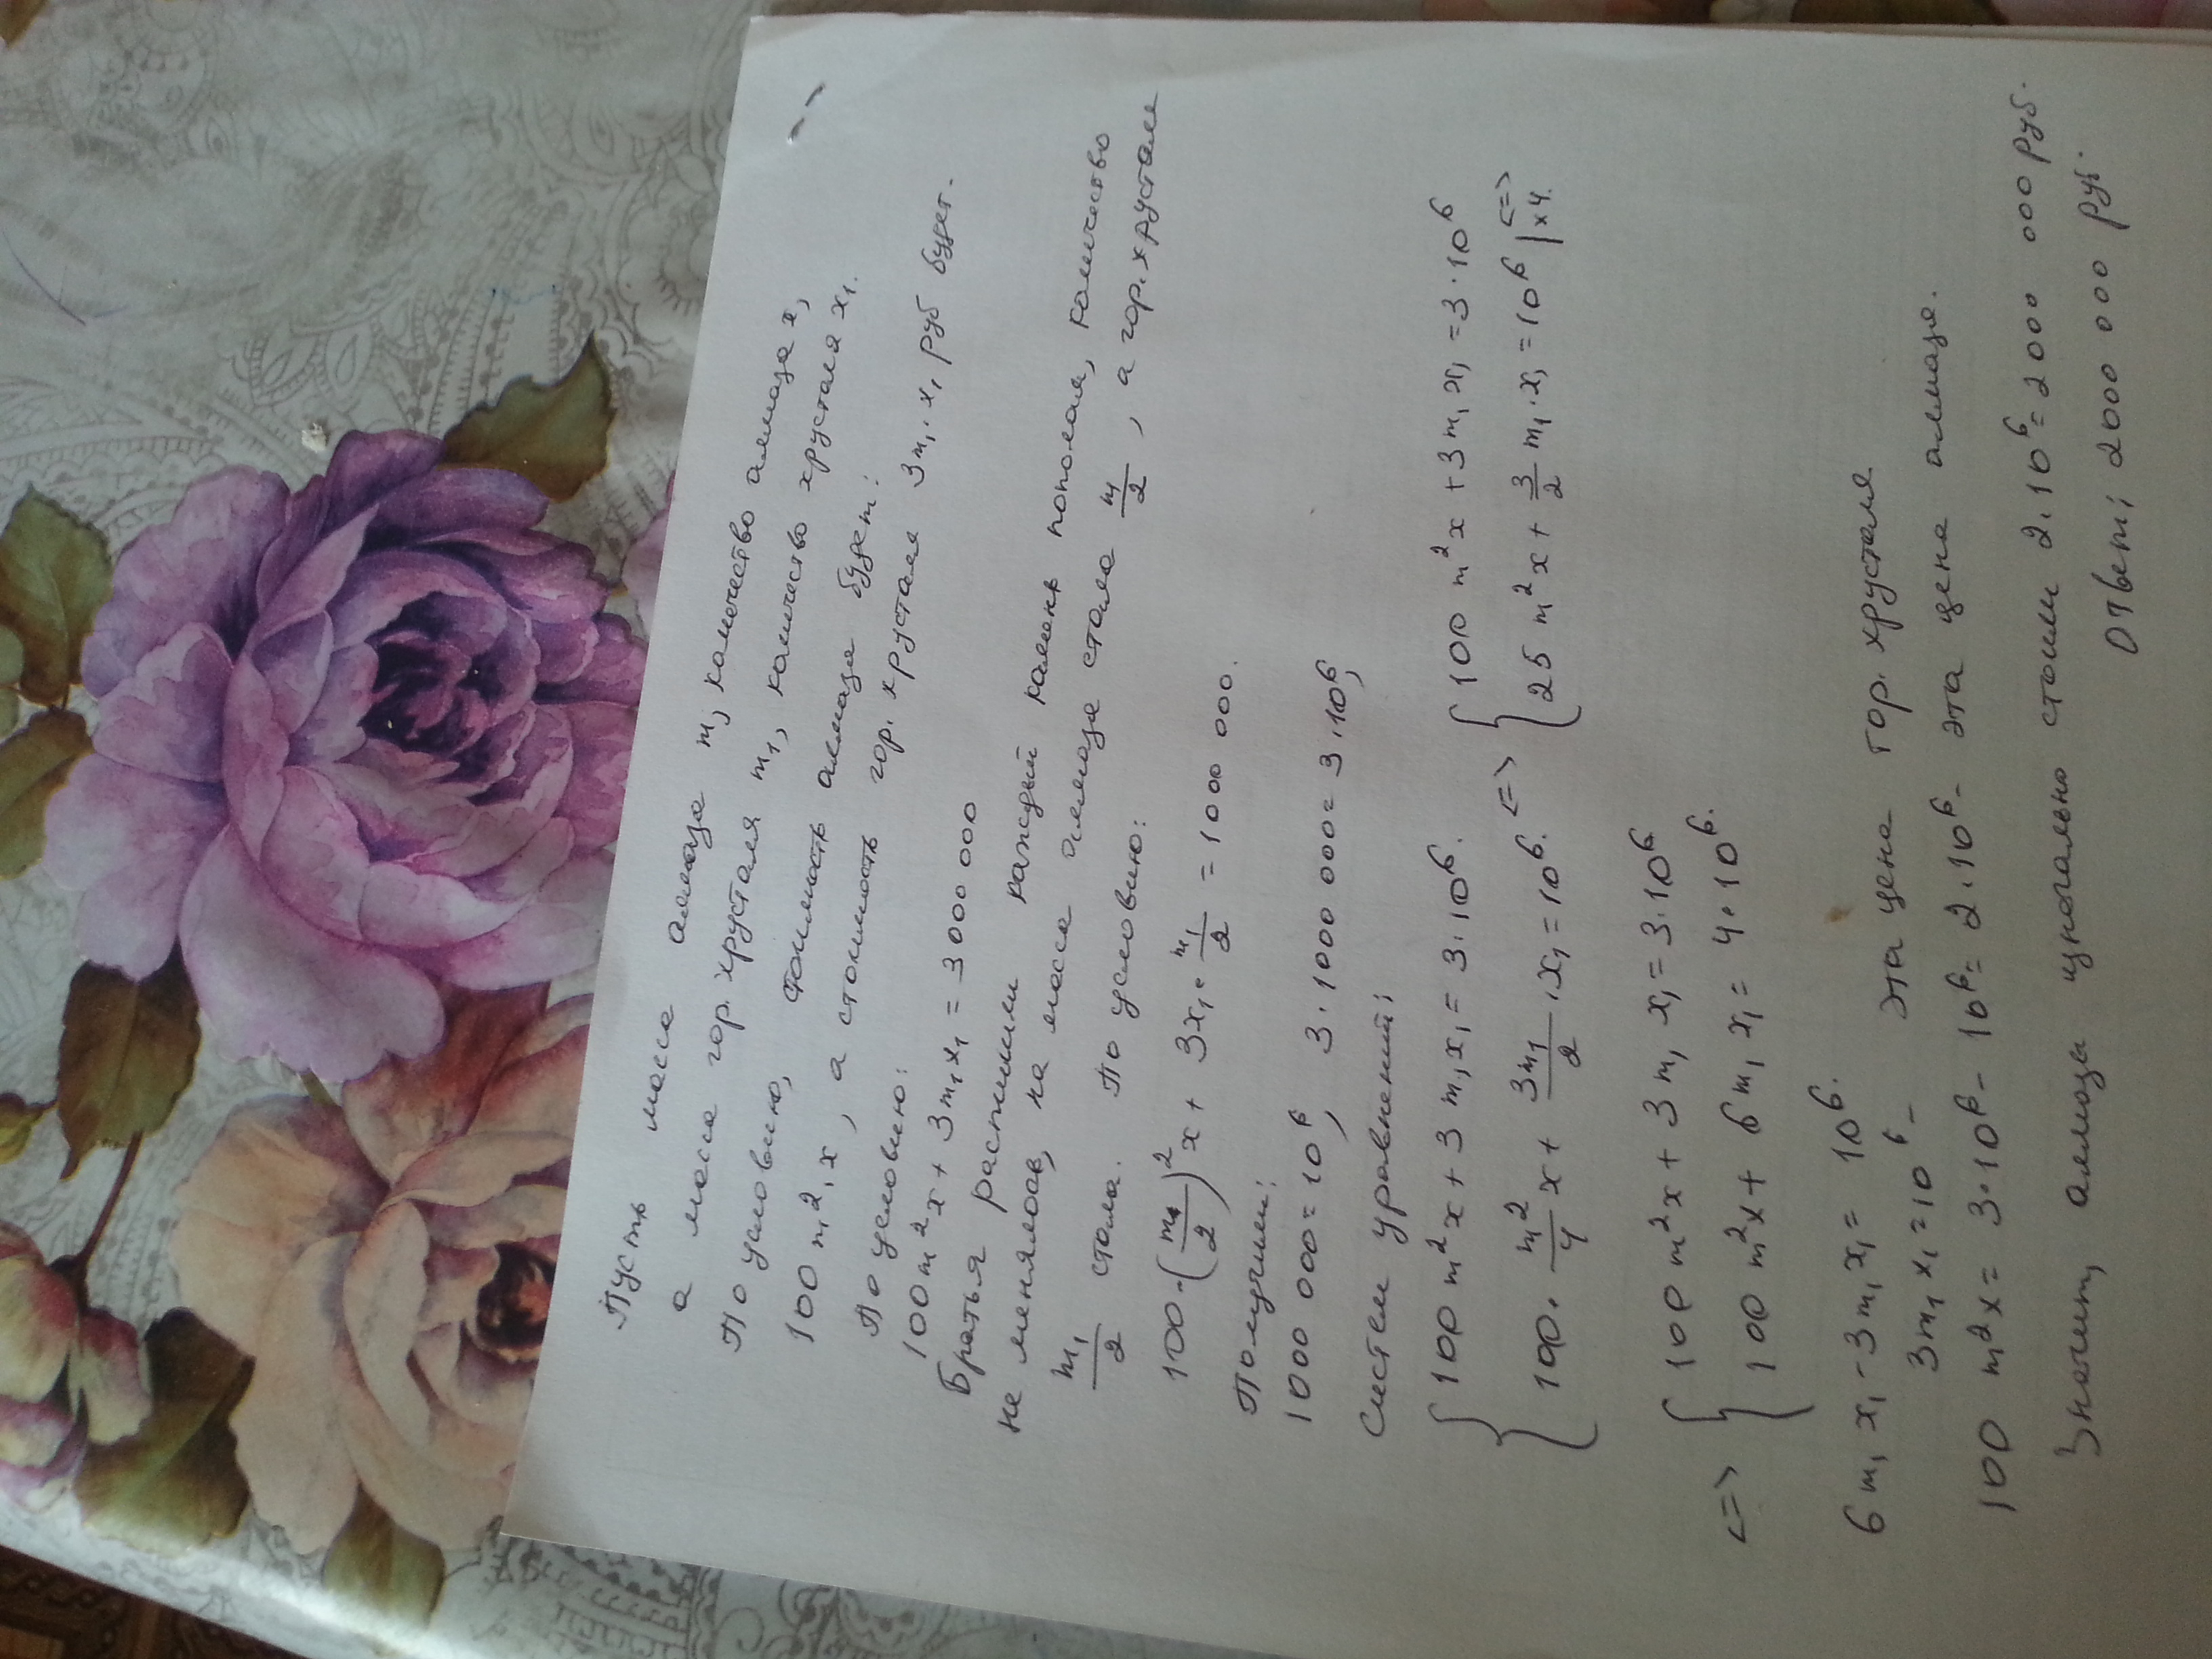 Пусть масса алмаза m, количество алмаза x,
а масса гор. хрусталя m₁, количество хрусталя x₁.
По условию, стоимость алмаза будет:
100 m²·x, а стоимость гор. хрусталя 3m₁·x₁ руб будет.
По условию:
100m²x + 3m₁x₁ = 3 000 000
Братья распилили каждый камень пополам, количество
не менялось, но масса алмаза стала m/2, а гор. хрусталя
m₁/2 стала. По условию:
100·(m/2)²x + 3x₁·m₁/2 = 1 000 000.
Получили:
1000 000 = 10⁶, 3·1000 000 = 3·10⁶,
Систем уравнений:
{ 100 m²x + 3 m₁x₁ = 3·10⁶. { 100 m²x + 3m₁x₁ = 3·10⁶
{ 100·m²/4 x + 3m₁/2·x₁ = 10⁶. <=> { 25 m²x + 3/2 m₁·x₁ = 10⁶ |x4. <=>
<=> { 100 m²x + 3 m₁x₁ = 3·10⁶
{ 100 m²x + 6m₁x₁ = 4·10⁶.
6m₁x₁ - 3m₁x₁ = 10⁶.
3m₁x₁ = 10⁶ - эта цена гор. хрусталя
100 m²x = 3·10⁶ - 10⁶ = 2·10⁶ - эта цена алмаза.
Значит, алмазы изначально стоили 2·10⁶ = 2000 000 руб.
Ответ: 2000 000 руб.